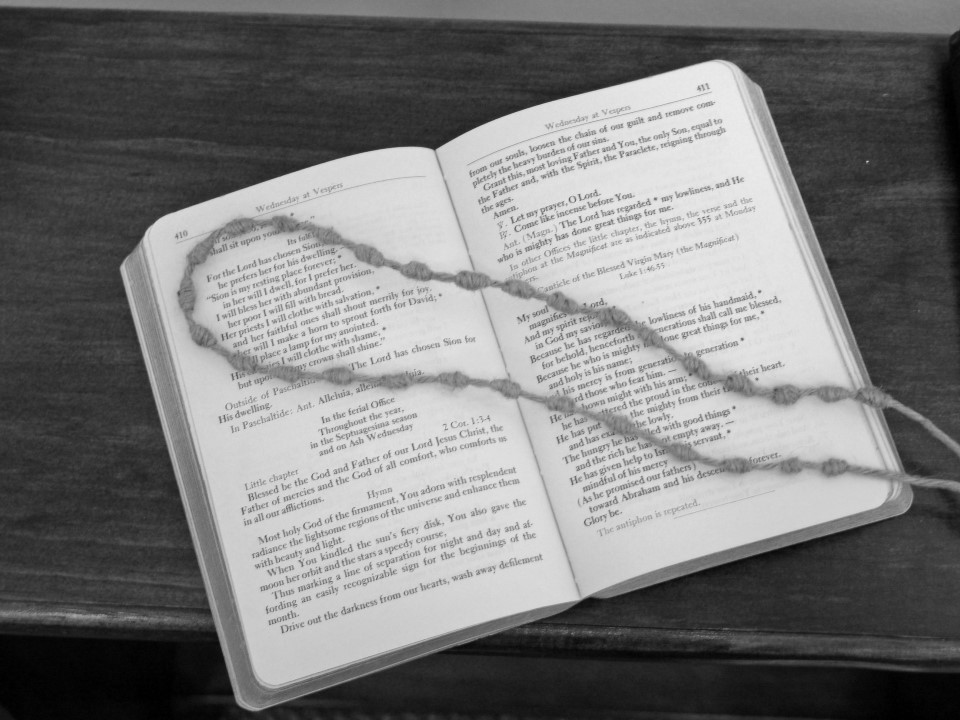 410
Wednesday at Vespers
shall sit upon your
Its full
For the Lord has chosen Sion
he prefers her for his dwelling.
"Sion is my resting place forever; *
in her will I dwell, for I prefer her.
I will bless her with abundant provision,
her poor I will fill with bread.
Her priests I will clothe with salvation, *
and her faithful ones shall shout merrily for joy.
her will I make a horn to sprout forth for David; *
place a lamp for my anointed.
His I will clothe with shame, *
but upon my crown shall shine."
Outside of Paschaltide: The Lord has chosen Sion for
His dwelling.
In Paschaltide: Ant. Alleluia, alleluia, alleluia.
In the ferial Office
Throughout the year,
in the Septuagesima season
and on Ash Wednesday
Little chapter 2 Cor. 1:3-4
Blessed be the God and Father of our Lord Jesus Christ, the
Father of mercies and the God of all comfort, who comforts us
in all our afflictions.
Hymn
Most holy God of the firmament, You adorn with resplendent
radiance the lightsome regions of the universe and enhance them
with beauty and light.
When You kindled the sun's fiery disk, You also gave the
moon her orbit and the stars a speedy course,
Thus marking a line of separation for night and day and af-
fording an easily recognizable sign for the beginnings of the
month.
Drive out the darkness from our hearts, wash away defilement
Wednesday at Vespers
411
from our souls, loosen the chain of our guilt and remove com-
pletely the heavy burden of our sins.
Grant this, most loving Father and You, the only Son, equal to
the Father and, with the Spirit, the Paraclete, reigning through
the ages.
Amen.
℣. Let my prayer, O Lord.
℟. Come like incense before You.
Ant. (Magn.) The Lord has regarded * my lowliness, and He
who is mighty has done great things for me.
In other Offices the little chapter, the hymn, the verse and the
antiphon at the Magnificat are as indicated above 355 at Monday
Canticle of the Blessed Virgin Mary (the Magnificat)
Luke 1:46-55
My soul Lord,
magnifies
And my spirit
in God my saviour
Because he has regarded lowliness of his handmaid, *
for behold, henceforth generations shall call me blessed,
Because he who is mighty done great things for me. *
and holy is his name;
his mercy is from generation to generation *
those who fear him. —
shown might with his arm; *
he has scattered the proud in the of their heart.
He has put the mighty from their
and has the lowly.
The hungry he has filled with good things *
and the rich he has sent empty away. —
He has given help to servant, *
mindful of his mercy
(As he promised our fathers)
toward Abraham and his descendants forever.
Glory be.
The antiphon is repeated.